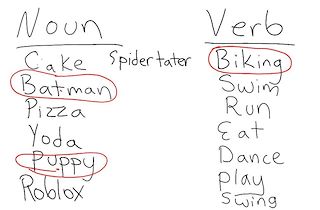 Noun Verb
Cake Spidertater Biking
Batman Swim
Pizza Run
Yoda Eat
Puppy Dance
Roblox Play
Swing